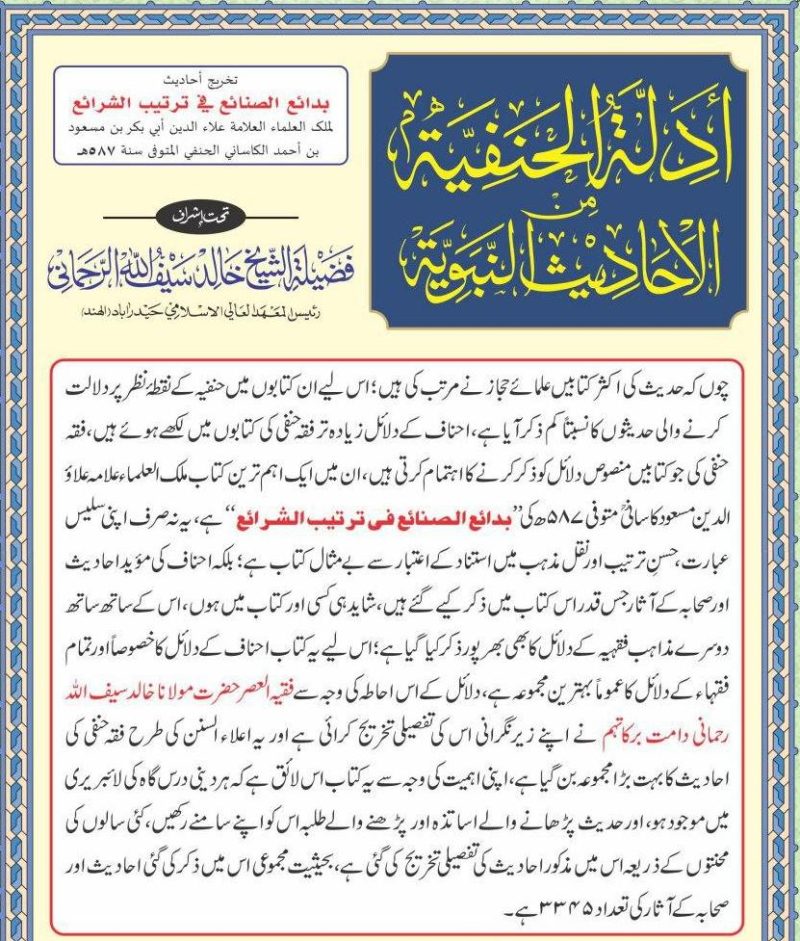 أدلة الحنفية
من
الأحاديث النبوية
تخريج أحاديث
بدائع الصنائع في ترتيب الشرائع
لملك العلماء العلامة علاء الدين أبي بكر بن مسعود
بن أحمد الكاساني الحنفي المتوفى سنة ٥٨٧هـ
تحت إشراف
فضيلة الشيخ خالد سيف الله الرحماني
رئيس المعهد العالي الاسلامي حيدراباد (الهند)
چوں کہ حدیث کی اکثر کتابیں علمائے حجاز نے مرتب کی ہیں؛ اس لیے ان کتابوں میں حنفیہ کے نقطۂ نظر پر دلالت
کرنے والی حدیثوں کا نسبتاً کم ذکر آیا ہے، احناف کے دلائل زیادہ تر فقہ حنفی کی کتابوں میں لکھے ہوئے ہیں، فقہ
حنفی کی جو کتابیں منصوص دلائل کو ذکر کرنے کا اہتمام کرتی ہیں، ان میں ایک اہم ترین کتاب ملک العلماء علامہ علاؤ
الدین مسعود کاسانیؒ متوفی ۵۸۷ھ کی ”بدائع الصنائع فی ترتیب الشرائع“ ہے، یہ نہ صرف اپنی سلیس
عبارت، حسنِ ترتیب اور نقل مذہب میں استناد کے اعتبار سے بے مثال کتاب ہے؛ بلکہ احناف کی مؤید احادیث
اور صحابہ کے آثار جس قدر اس کتاب میں ذکر کیے گئے ہیں، شاید ہی کسی اور کتاب میں ہوں، اس کے ساتھ ساتھ
دوسرے مذاہب فقہیہ کے دلائل کا بھی بھرپور ذکر کیا گیا ہے؛ اس لیے یہ کتاب احناف کے دلائل کا خصوصاً اور تمام
فقہاء کے دلائل کا عموماً بہترین مجموعہ ہے، دلائل کے اس احاطہ کی وجہ سے فقیہ العصر حضرت مولانا خالد سیف اللہ
رحمانی دامت برکاتہم نے اپنے زیر نگرانی اس کی تفصیلی تخریج کرائی ہے اور یہ اعلاء السنن کی طرح فقہ حنفی کی
احادیث کا بہت بڑا مجموعہ بن گیا ہے، اپنی اہمیت کی وجہ سے یہ کتاب اس لائق ہے کہ ہر دینی درس گاہ کی لائبریری
میں موجود ہو، اور حدیث پڑھانے والے اساتذہ اور پڑھنے والے طلبہ اس کو اپنے سامنے رکھیں، کئی سالوں کی
محنتوں کے ذریعہ اس میں مذکور احادیث کی تفصیلی تخریج کی گئی ہے، بحیثیت مجموعی اس میں ذکر کی گئی احادیث اور
صحابہ کے آثار کی تعداد ۳۳۴۵ ہے۔